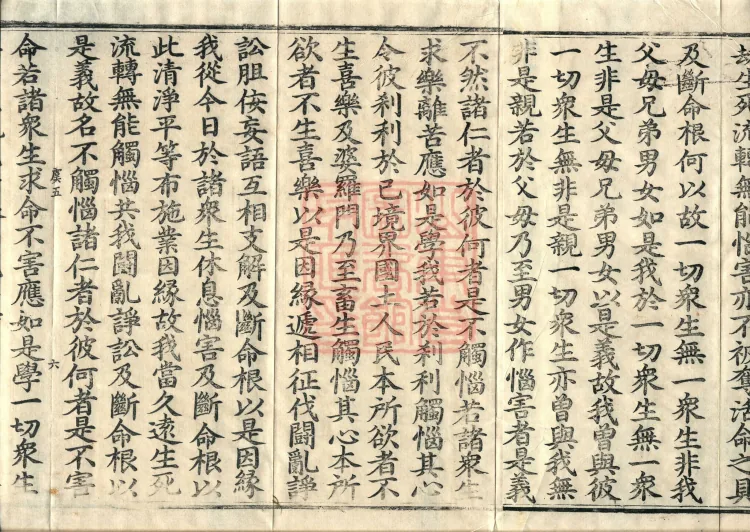 生死流轉無能惱害亦不被奪活命之具
及斷命根何以故一切衆生無一衆生非我
父母兄弟男女如是我於一切衆生無一衆
生非是父母兄弟男女以是義故我曾與彼
一切衆生無非是親一切衆生亦曾與我無
非是親若於父母乃至男女作惱害者是義
不然諸仁者於彼何者是不觸惱若諸衆生
求樂離苦應如是學我若於刹利觸惱其心
令彼刹利於已境界國土人民本所欲者不
生喜樂及婆羅門乃至畜生觸惱其心本所
欲者不生喜樂以是因緣遞相征伐鬪亂諍
訟胆侫妄語互相支解及斷命根以是因緣
我從今日於諸衆生休息惱害及斷命根以
此清淨平等布施業因緣故我當久遠生死
流轉無能觸惱共我鬪亂諍訟及斷命根以
是義故名不觸惱諸仁者於彼何者是不害
虞五 六
命若諸衆生求命不害應如是學一切衆生